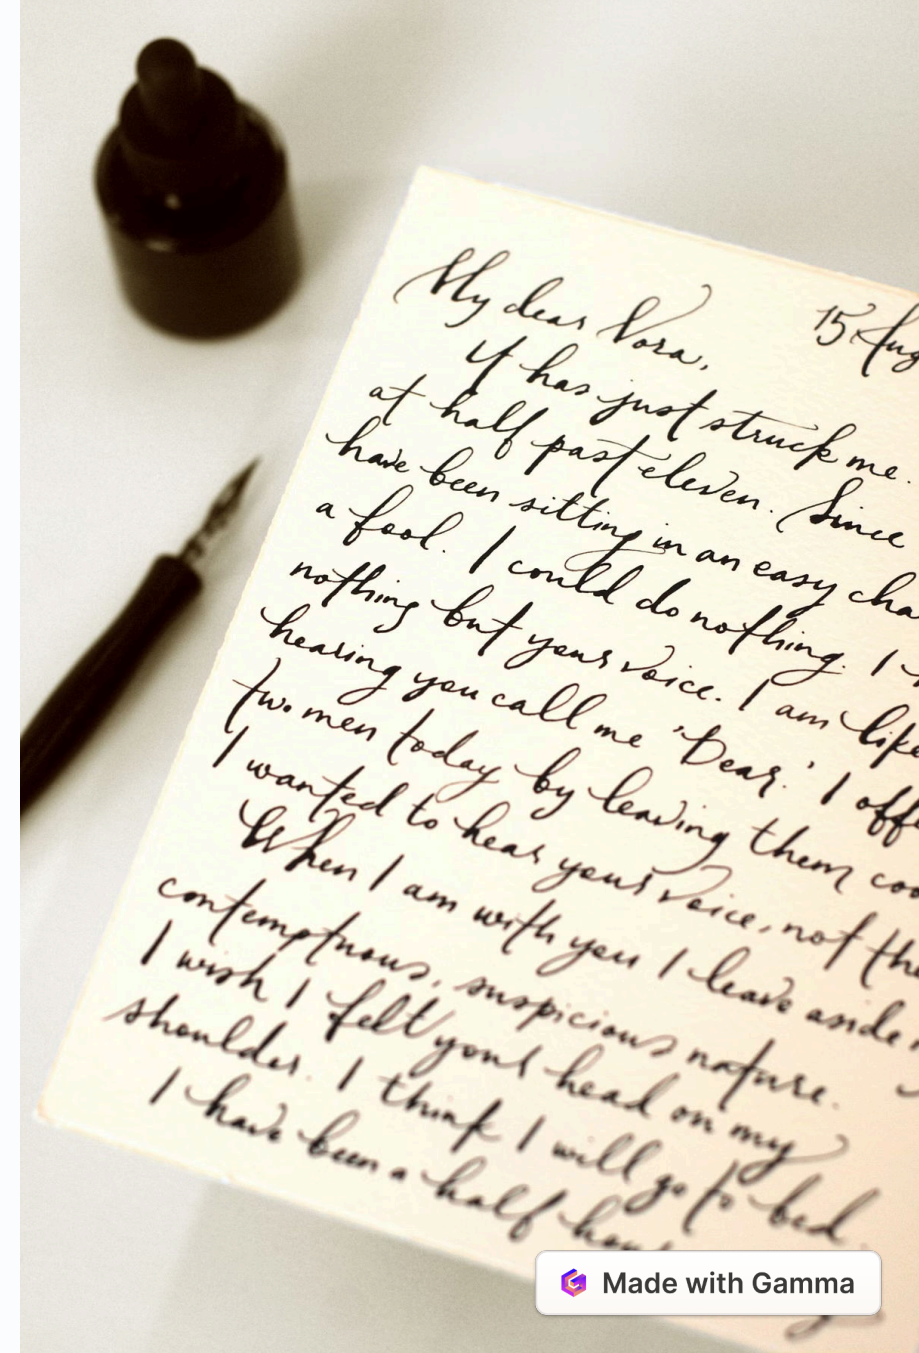 My dear Nora,
15 Aug
It has just struck me.
at half past eleven. Since
have been sitting in an easy cha
a fool. I could do nothing. I
nothing but your voice. I am like
hearing you call me 'Dear.' I offe
two men today by leaving them coo
I wanted to hear your voice, not the
When I am with you I leave aside
contemptuous, suspicious nature.
I wish I felt your head on my
shoulder. I think I will go to bed.
I have been a half hou
Made with Gamma